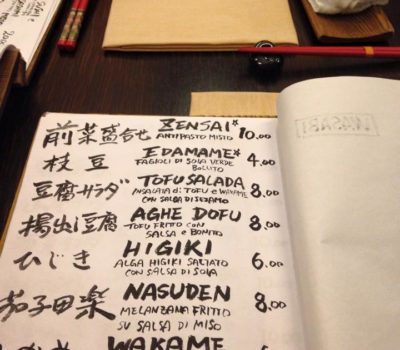 前菜盛合せ ZENSAI* 10.00
ANTIPASTO MISTO
枝豆 EDAMAME* 4.00
FAGIOLI DI SOIA VERDE
BOLLITO
豆腐サラダ TOFUSALADA 8.00
INSALATA di TOFU e WAKAME
CON SALSA DI SESAMO
揚出し豆腐 AGHE DOFU 8.00
TOFU FRITTO CON
SALSA e BONITO
ひじき HIGIKI 6.00
ALGA HIGIKI SALTATO
CON SALSA DI SOIA
茄子田楽 NASUDEN 8.00
MELANZANA FRITTO
SU SALSA DI MISO
WAKAME
WASABI